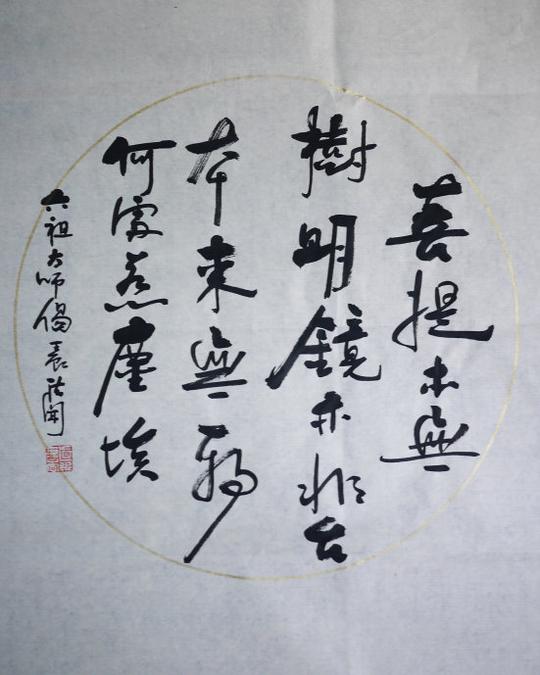 菩提本無
樹明鏡亦非台
本來無一物
何處惹塵埃
六祖大师偈